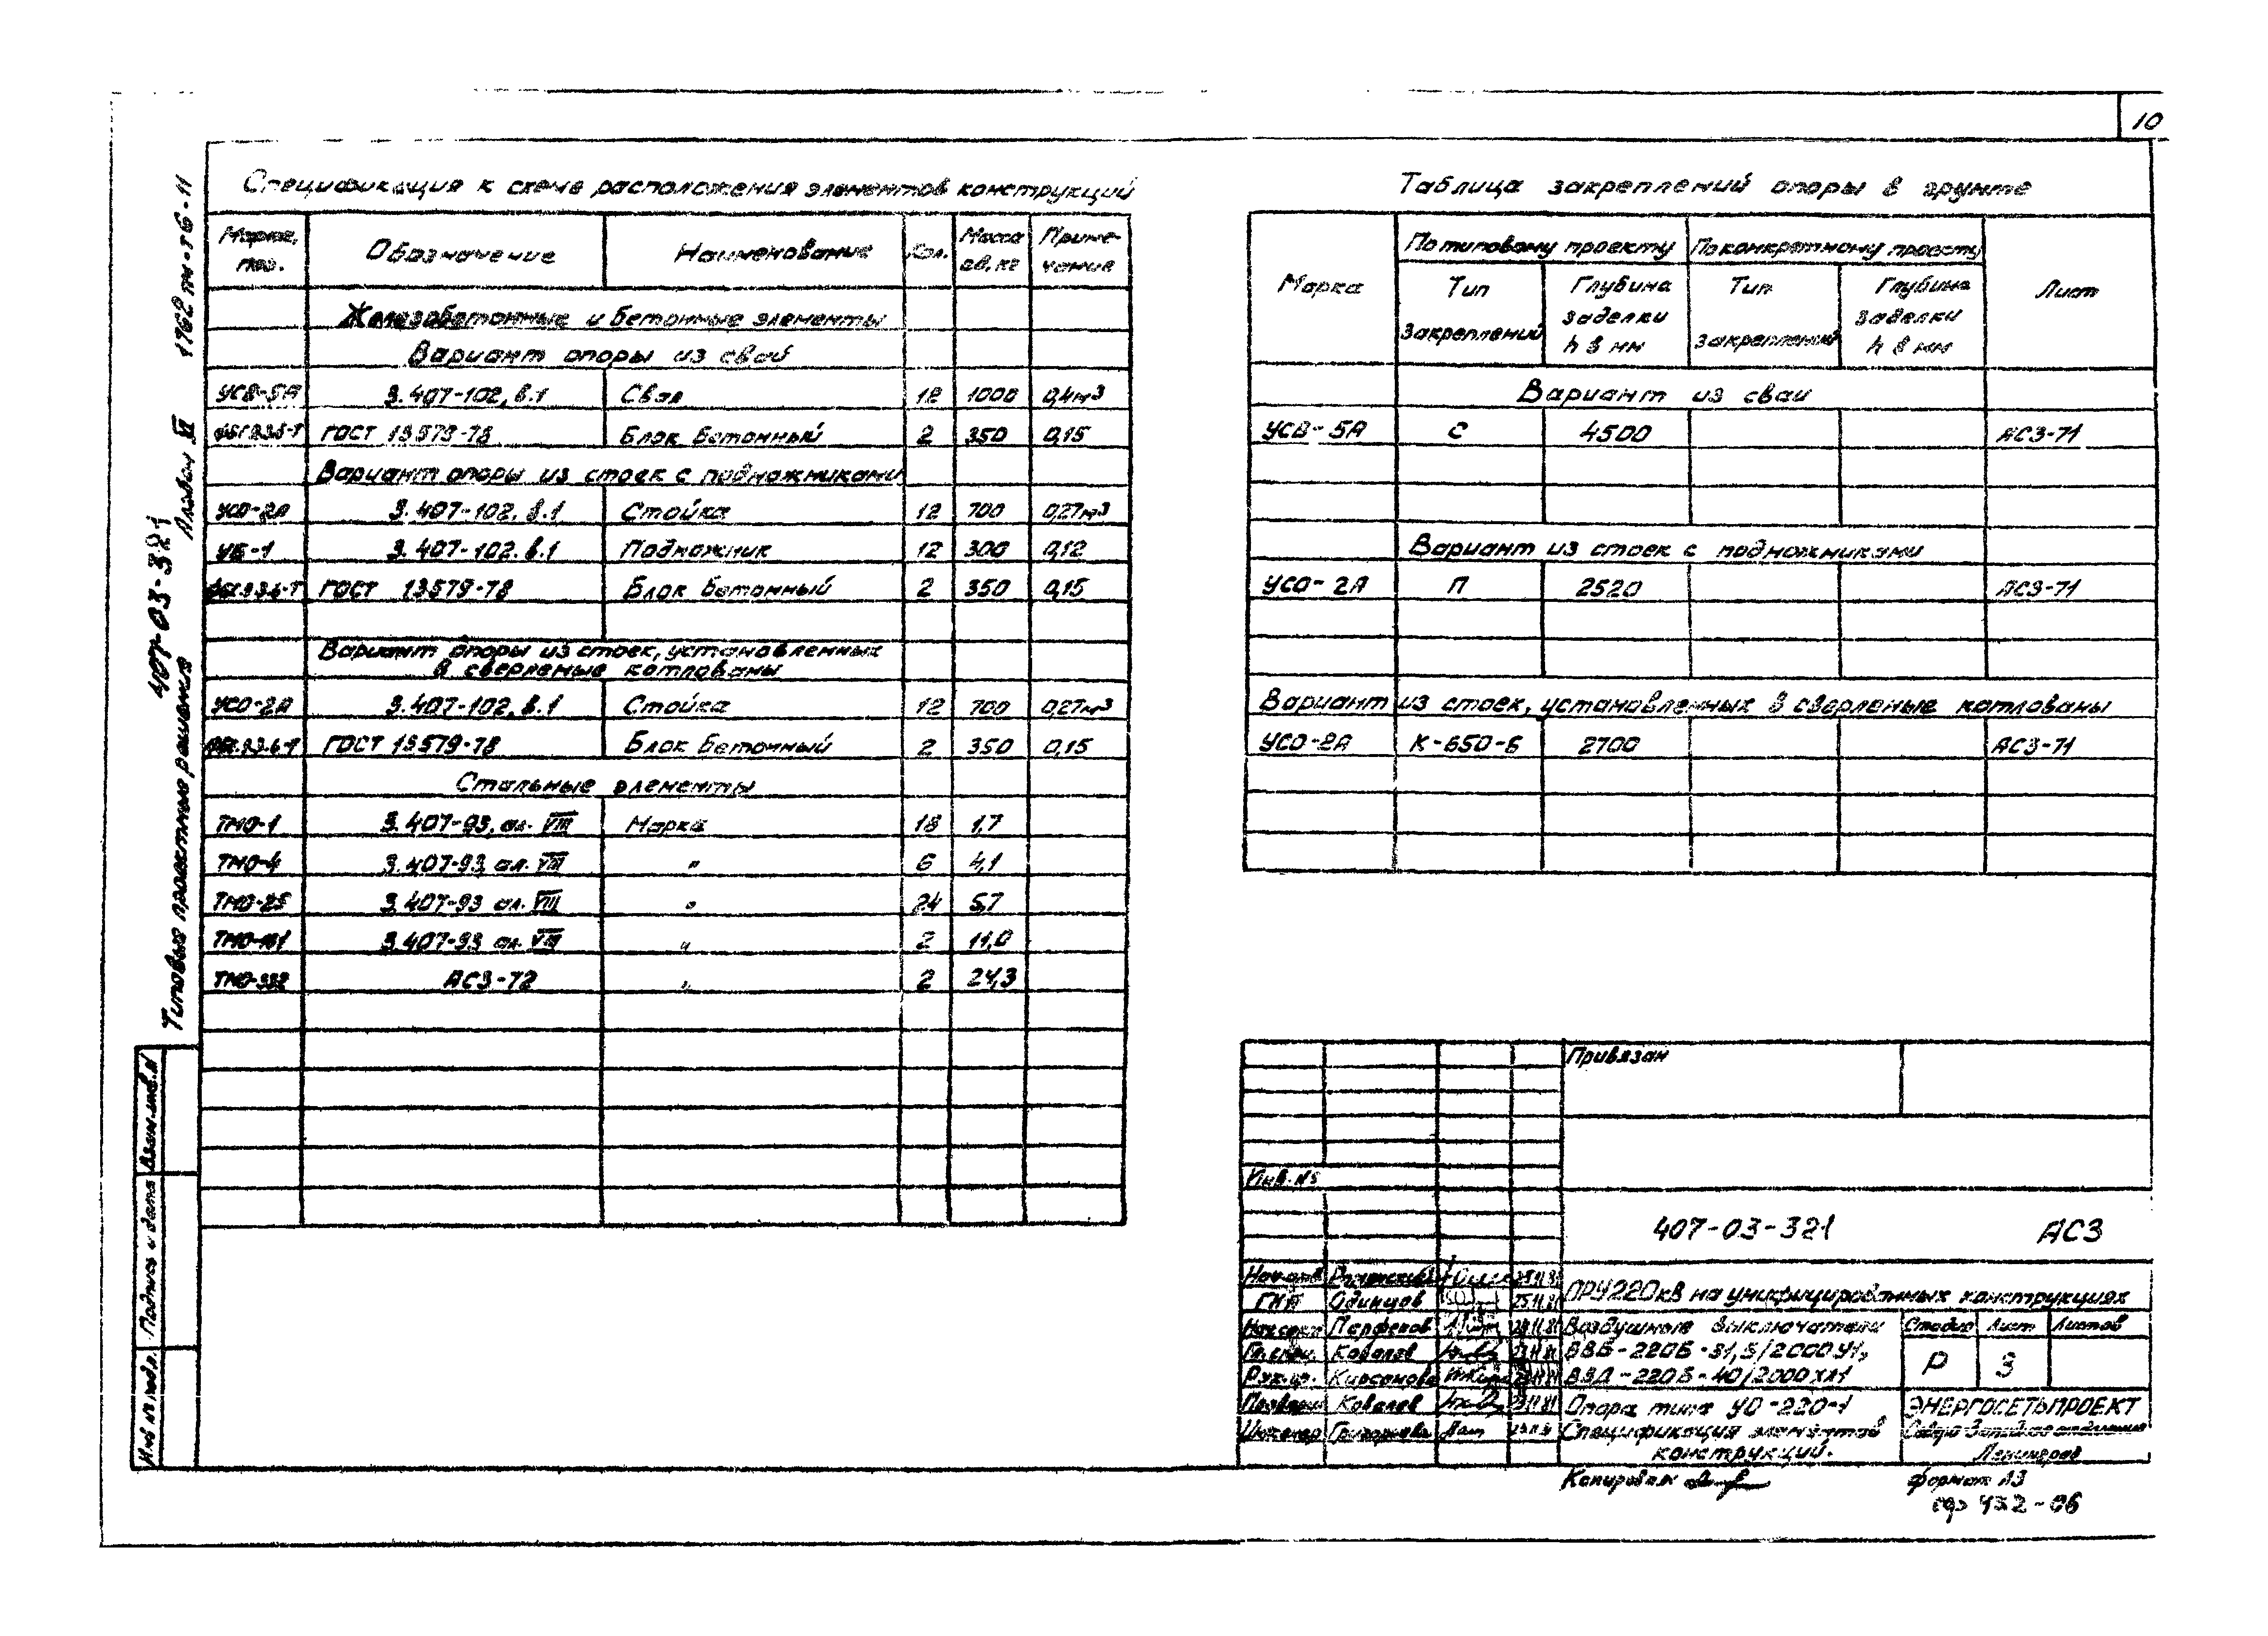 10
Спецификация к схеме расположения элементов конструкций
Марка, поз. Обозначение Наименование Кол. Масса ед, кг Приме-чание
Железобетонные и бетонные элементы
Вариант опоры из свай
УСВ-5А 3.407-102, в.1 Свая 12 1000 0,4м³
ГОСТ 13579-78 Блок бетонный 2 350 0,15
Вариант опоры из стоек с подножниками
УСО-2А 3.407-102. в.1 Стойка 12 700 0,27м³
УБ-1 3.407-102. в.1 Подножник 12 300 0,12
ГОСТ 13579-78 Блок бетонный 2 350 0,15
Вариант опоры из стоек, установленных
в сверленые котлованы
УСО-2А 3.407-102, в.1 Стойка 12 700 0,27м³
ГОСТ 13579-78 Блок бетонный 2 350 0,15
Стальные элементы
ТМО-1 3.407-93, ал. VIII Марка 18 1,7
ТМО-4 3.407-93 ал. VIII " 6 4,1
ТМО-25 3.407-93 ал. VIII " 24 5,7
3.407-93 ал. VIII " 2 11,0
АС3-72 " 2 24,3
Таблица закреплений опоры в грунте
Марка По типовому проекту По конкретному проекту Лист
Тип закреплений Глубина заделки h в мм Тип закреплений Глубина заделки h в мм
Вариант из сваи
УСВ-5А С 4500 АС3-71
Вариант из стоек с подножниками
УСО-2А П 2520 АС3-71
Вариант из стоек, установленных в сверленые котлованы
УСО-2А К-650-Б 2700 АС3-71
Типовые проектные решения 407-03-321 Альбом VI 1762 тм-т6-11
Взам.инв.№
Подпись и дата
Инв № подл.
Привязан
Инв. №
407-03-321 АС3
Нач.отд.
ГИП Одинцов
Парфенов
Гл.спец. Ковалев
Рук.гр. Кирсанова
Ковалев
Инженер Григорьева
ОРУ 220 кВ на унифицированных конструкциях
Воздушные выключатели
ВВБ-220Б-31,5/2000У1,
ВВД-220Б-40/2000ХЛ1
Стадия Лист Листов
Р 3
Опора типа УО-220-1
Спецификация элементов
конструкций.
ЭНЕРГОСЕТЬПРОЕКТ
Северо-Западное отделение
Ленинград
Копировал
Формат А3
432-06